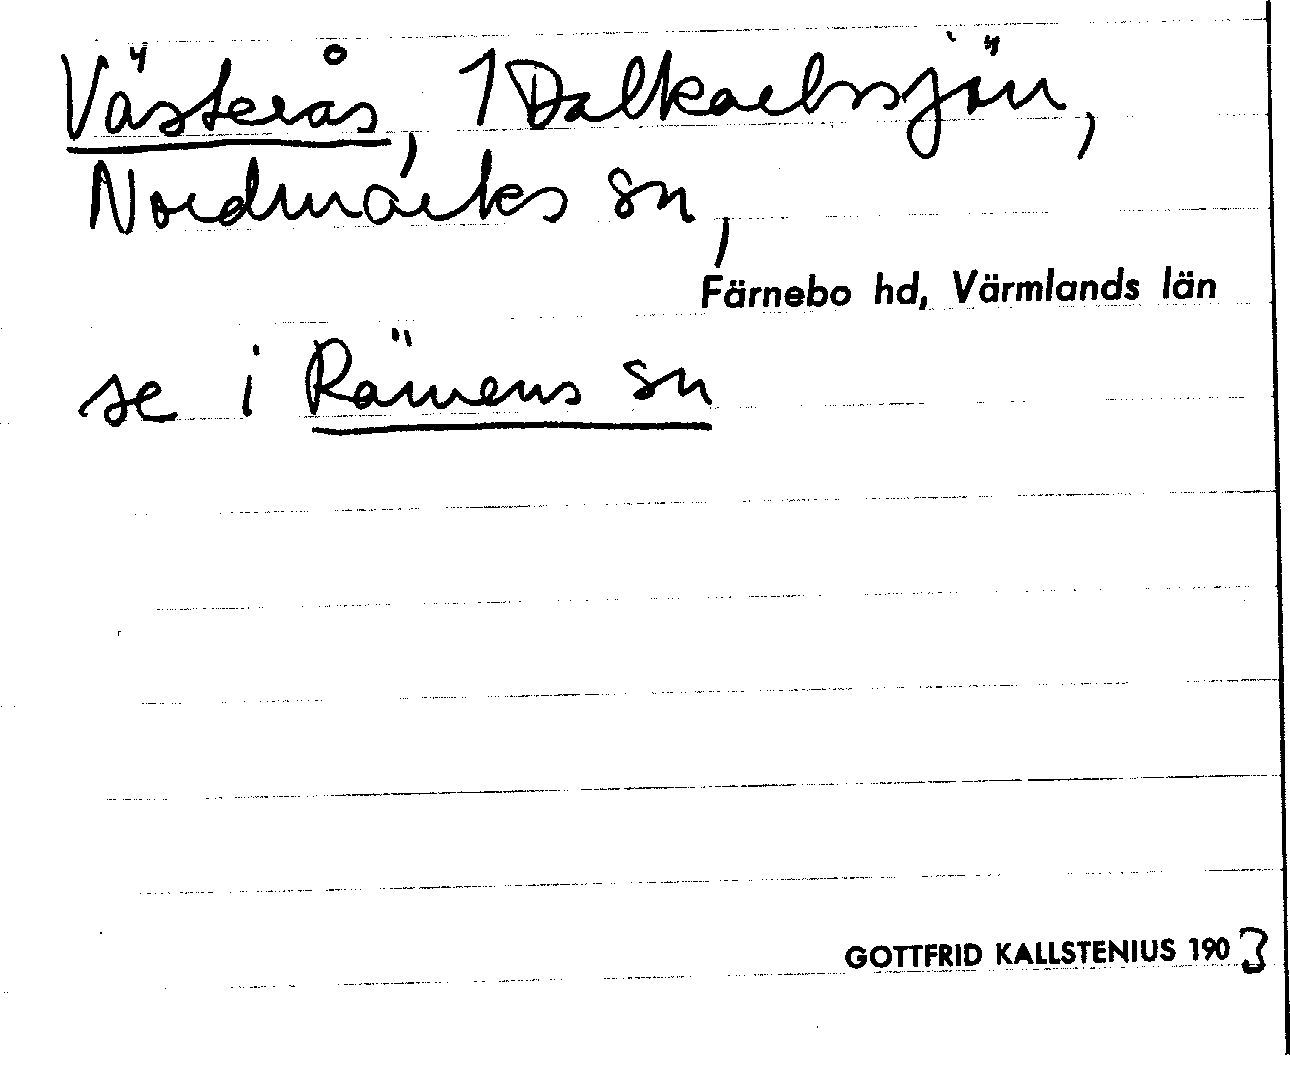 Västerås, 1 Dalkarlssjön,
Nordmarks sn,
Färnebo hd, Värmlands län
se i Rämens sn
GOTTFRID KALLSTENIUS 1903